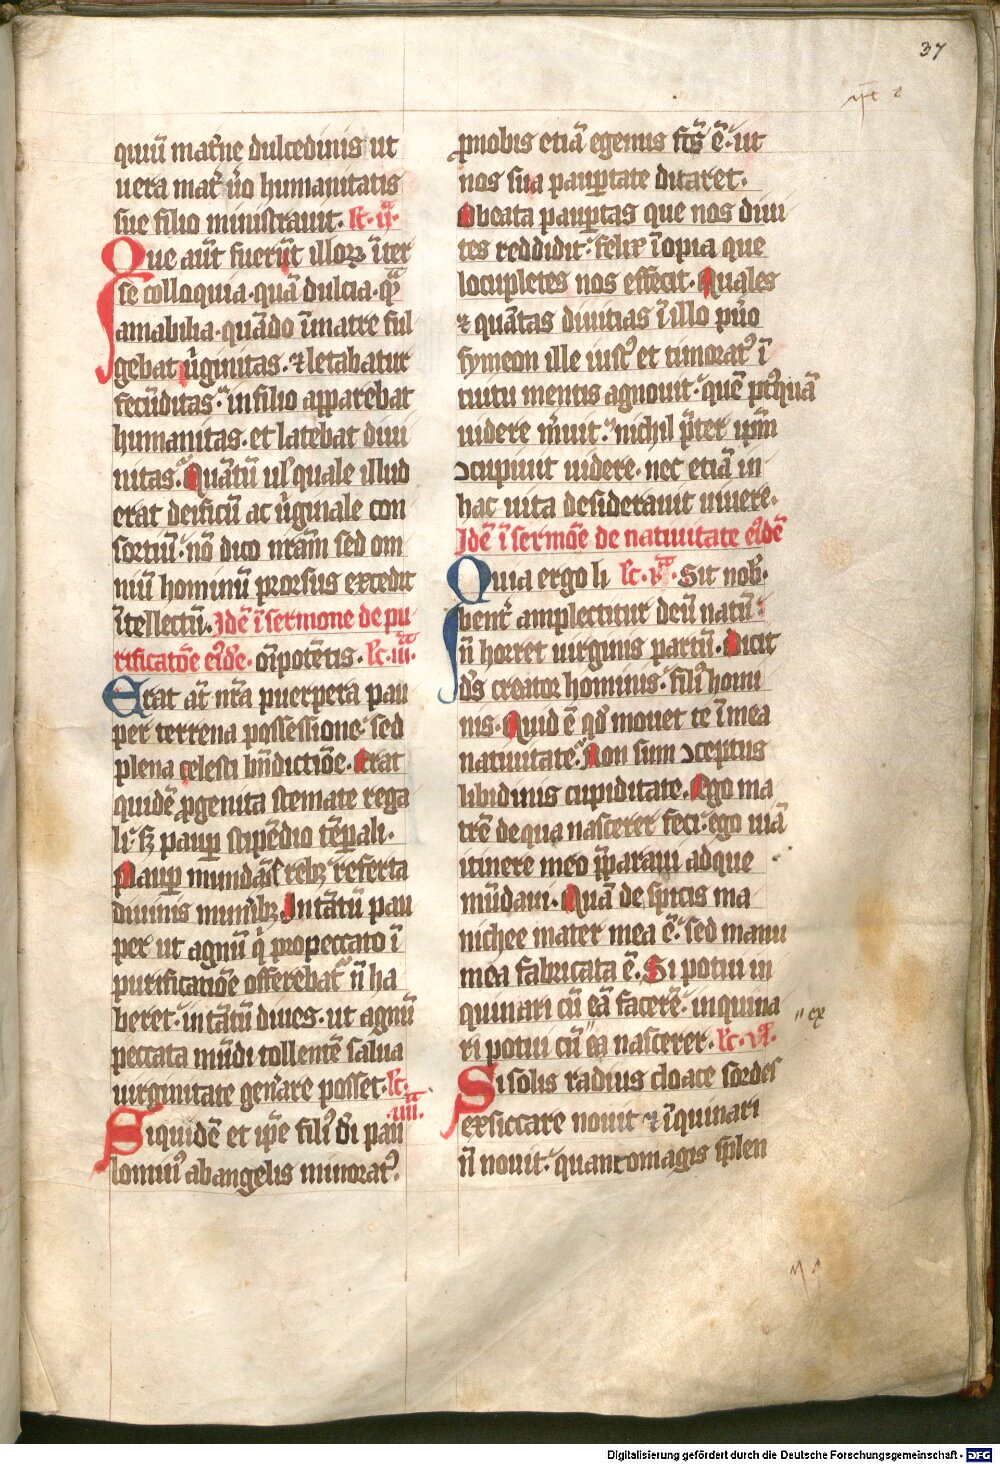 37
quiū mat̄ne dulcedinis ut
uera mat̄ u̓o humanitatis
sue filio ministrauit. lc̄. ij.
Que aūt fuerūt illoꝝ īter
se colloquia. quā dulcia. qͣ̄
amabilia. quādo ī matre ful
gebat u̓ginitas. ⁊ letabatur
fecūditas. in filio apparebat
humanitas. et latebat diui
nitas. Quātū ul̓ quale illud
erat deificū ac u̓ginale con
sortiū. nō dico nr̄am sed om
niū hominū prorsus excedit
ītellectū. Jdē ī sermone de pu
rificatōe eiꝰdē. oīpotētis. lc̄. iij.
Erat at̄ nr̄a puerpera pau
per terrena possessione. sed
plena celesti bn̄dictiōe. Erat
quidē ꝓgenita stemate rega
li. sꝫ pauꝑ stipēdio tēꝑali.
Pauꝑ mundāis rebꝫ referta
diuinis mun̓ibꝫ. Jn tātū pau
per ut agnū q̓ pro peccato ī
purificatiōe offerebat̄ n̄ ha
beret. in tātū diues. ut agnū
peccata mūdi tollentē salua
uirginitate gen̓are posset. lc̄.
iiij.
Siquidē et ip̄e filiꝰ d̄i pau
lominꝰ ab angelis minoratꝰ.
ꝓ nobis etiā egenus fc̄s ē. ut
nos sua pauꝑtate ditaret.
O beata pauꝑtas que nos diui
tes reddidit. felix īopia que
locupletes nos effecit. Quales
⁊ quātas diuitias ī illo pu̓o
symeon ille iustꝰ et timoratꝰ ī
tuitu mentis agnouit. quē ptꝰquā
uidere m̓uit. nichil p̄ter ip̄m
ꝯcupiuit uidere. nec etiā in
hac uita desiderauit uiuere.
Jdē ī sermōe de natiuitate eiꝰdē
Quia ergo li lc̄. v. Sit nob̓.
bent̄ amplectitur deū natū.
n̄ horret uirginis partū. Dicit
d̄s creator hominis. filiꝰ homi
nis. Quid ē qd̓ mouet te ī mea
natiuitate. Non sum ꝯceptus
libidinis cupiditate. Ego ma
trē de qua nascerer feci. ego uiā
itinere meo p̄paraui adque
mūdaui. Quā despicis ma
nichee mater mea ē. sed manu
mea fabricata ē. Si potui in
quinari cū eā facerē. inquina
ri potui cū ex ea nascerer. lc̄. vi.
Si solis radius cloace sordes
exsiccare nouit ⁊ īquinari
n̄ nouit. quanto magis splen
Digitalisierung gefördert durch die Deutsche Forschungsgemeinschaft - DFG